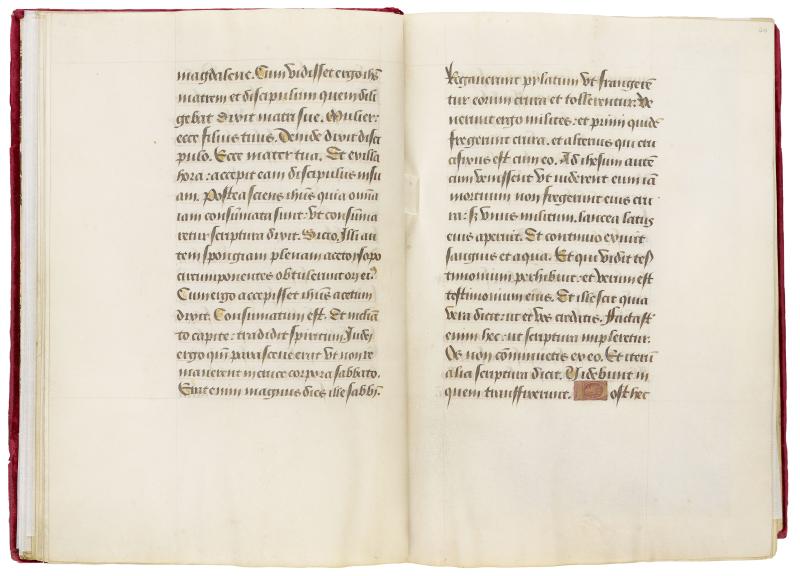 magdalene. Cum vidisset ergo ihs
matrem et discipulum quem dili
gebat dixit matri sue. Mulier:
ecce filius tuus. Deinde dixit disci
pulo. Ecce mater tua. Et ex illa
hora: accepit eam discipulus in su
am. Postea sciens ihus quia omīa
iam consūmata sunt: vt consūma
retur scriptura dixit. Sicio. Illi au
tem spongiam plenam aceto ysopo
circumponentes obtulerunt ori ei9
Cum ergo accepisset ihus acetum
dixit. Consumatum est. Et inclina
to capite: tradidit spiritum. Judei
ergo qm̄ parasceue erat vt non re
manerent in cruce corpora sabbato.
Erat enim magnus dies ille sabbi.
Rogauerunt pylatum vt frangerē
tur eorum crura et tollerentur: Ve
nerunt ergo milites: et primi quidē
fregerunt crura. et alterius qui cru
cifixus est cum eo. Ad ihesum autē
cum venissent vt viderent eum iā
mortuum non fregerunt eius cru
ra: s; vnus militum. lancea latus
eius aperuit. Et continuo exiuit
sanguis et aqua. Et qui vidit tes
timonium perhibuit: et verum est
testimonium eius. Et ille scit quia
vera dicit: ut et vos credatis. Facta st̄
enim hec: ut scriptura impleretur.
Os non cōminuetis ex eo. Et iterū
alia scriptura dicit. Videbunt in
quem transfixerunt. Post hec